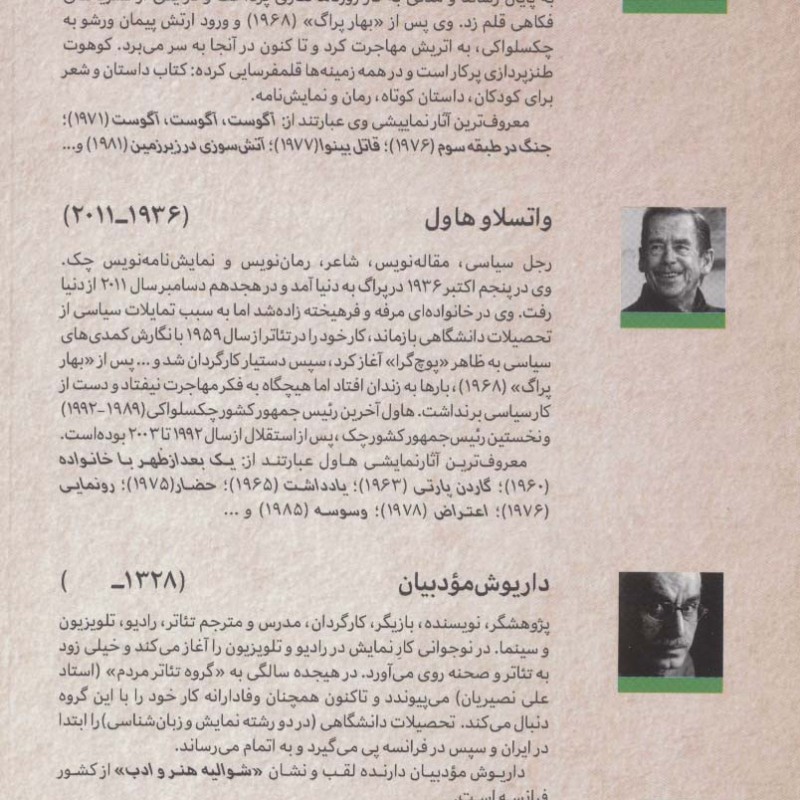 فکاهی قلم زد. وی پس از «بهار پراگ» (۱۹۶۸) و ورود ارتش پیمان ورشو به
چکسلواکی، به اتریش مهاجرت کرد و تا کنون در آنجا به سر می‌برد. کوهوت
طنزپردازی پرکار است و در همه زمینه‌ها قلمفرسایی کرده: کتاب داستان و شعر
برای کودکان، داستان کوتاه، رمان و نمایش‌نامه.
معروف‌ترین آثار نمایشی وی عبارتند از: آگوست، آگوست، آگوست (۱۹۷۱)؛
جنگ در طبقه سوم (۱۹۷۶)؛ قاتل بینوا(۱۹۷۷)؛ آتش‌سوزی در زیرزمین (۱۹۸۱) و...
واتسلاو هاول (۱۹۳۶ـ۲۰۱۱)
رجل سیاسی، مقاله‌نویس، شاعر، رمان‌نویس و نمایش‌نامه‌نویس چک.
وی در پنجم اکتبر ۱۹۳۶ در پراگ به دنیا آمد و در هجدهم دسامبر سال ۲۰۱۱ از دنیا
رفت. وی در خانواده‌ای مرفه و فرهیخته زاده‌شد اما به سبب تمایلات سیاسی از
تحصیلات دانشگاهی بازماند، کار خود را در تئاتر از سال ۱۹۵۹ با نگارش کمدی‌های
سیاسی به ظاهر «پوچ‌گرا» آغاز کرد، سپس دستیار کارگردان شد و ... پس از «بهار
پراگ» (۱۹۶۸)، بارها به زندان افتاد اما هیچگاه به فکر مهاجرت نیفتاد و دست از
کار سیاسی برنداشت. هاول آخرین رئیس جمهور کشور چکسلواکی (۱۹۸۹-۱۹۹۲)
و نخستین رئیس جمهور کشور چک ، پس از استقلال از سال ۱۹۹۲ تا ۲۰۰۳ بوده‌است.
معروف‌ترین آثار نمایشی هاول عبارتند از: یک بعدازظهر با خانواده
(۱۹۶۰)؛ گاردن پارتی (۱۹۶۳)؛ یادداشت (۱۹۶۵)؛ حضار(۱۹۷۵)؛ رونمایی
(۱۹۷۶)؛ اعتراض (۱۹۷۸)؛ وسوسه (۱۹۸۵) و ...
داریوش مؤدبیان (۱۳۲۸ـ )
پژوهشگر، نویسنده، بازیگر، کارگردان، مدرس و مترجم تئاتر، رادیو، تلویزیون
و سینما. در نوجوانی کارِ نمایش در رادیو و تلویزیون را آغاز می‌کند و خیلی زود
به تئاتر و صحنه روی می‌آورد. در هیجده سالگی به «گروه تئاتر مردم» (استاد
علی نصیریان) می‌پیوندد و تاکنون همچنان وفادارانه کار خود را با این گروه
دنبال می‌کند. تحصیلات دانشگاهی (در دو رشته نمایش و زبان‌شناسی) را ابتدا
در ایران و سپس در فرانسه پی می‌گیرد و به اتمام می‌رساند.
داریوش مؤدبیان دارنده لقب و نشان «شوالیه هنر و ادب» از کشور